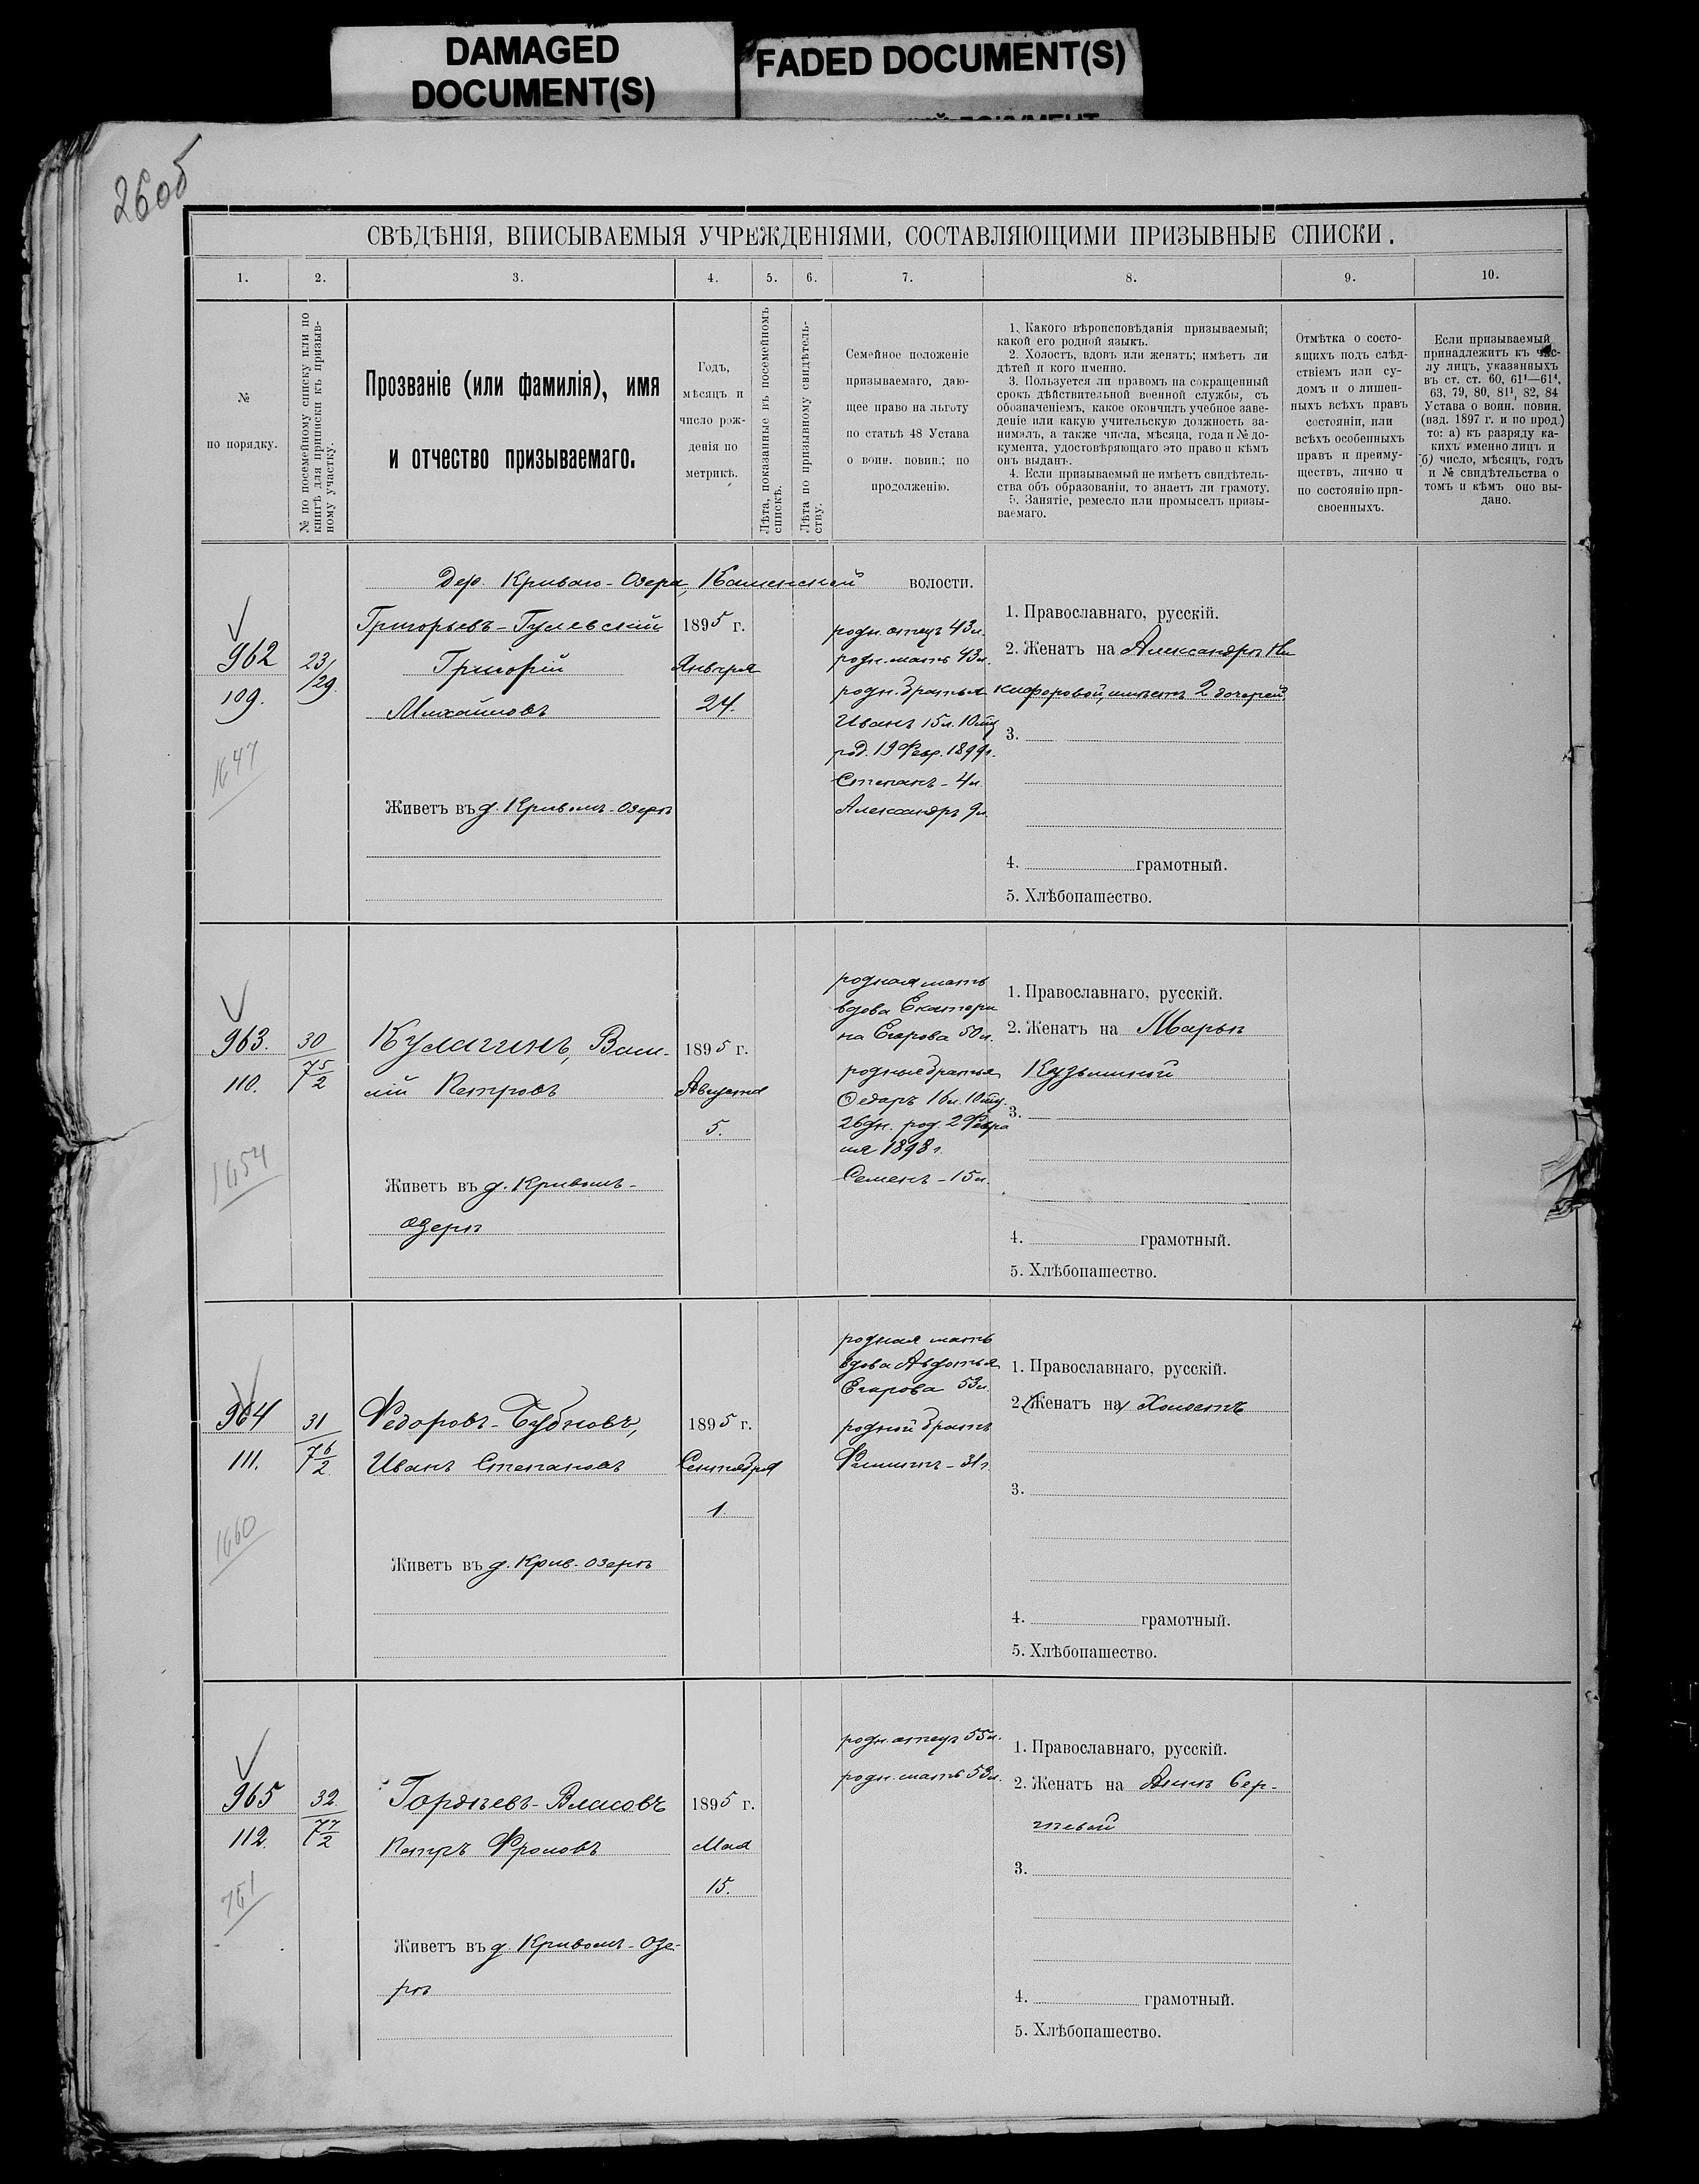 DAMAGED
DOCUMENT(S)
FADED DOCUMENT(S)
260б
СВѢДѢНІЯ, ВПИСЫВАЕМЫЯ УЧРЕЖДЕНІЯМИ, СОСТАВЛЯЮЩИМИ ПРИЗЫВНЫЕ СПИСКИ.
1. 2. 3. 4. 5. 6. 7. 8. 9. 10.
№
по порядку.
№ по посемейному списку или по
книгѣ для приписки къ призыв-
ному участку.
Прозваніе (или фамилія), имя
и отчество призываемаго.
Годъ,
мѣсяцъ и
число рож-
денія по
метрикѣ.
Лѣта, показанные въ посемейномъ
спискѣ.
Лѣта по призывному свидѣтель-
ству.
Семейное положеніе
призываемаго, даю-
щее право на льготу
по статьѣ 48 Устава
о воин. повин.; по
продолженію.
1. Какого вѣроисповѣданія призываемый;
какой его родной языкъ.
2. Холостъ, вдовъ или женатъ; имѣетъ ли
дѣтей и кого именно.
3. Пользуется ли правомъ на сокращенный
срокъ дѣйствительной военной службы, съ
обозначеніемъ, какое окончилъ учебное заве-
деніе или какую учительскую должность за-
нималъ, а также числа, мѣсяца, года и № до-
кумента, удостовѣряющаго это право и кѣмъ
онъ выданъ.
4. Если призываемый не имѣетъ свидѣтель-
ства объ образованіи, то знаетъ ли грамоту.
5. Занятіе, ремесло или промыселъ призы-
ваемаго.
Отмѣтка о состо-
ящихъ подъ слѣд-
ствіемъ или су-
домъ и о лишен-
ныхъ всѣхъ правъ
состоянія, или
всѣхъ особенныхъ
правъ и преиму-
ществъ, лично и
по состоянію при-
своенныхъ.
Если призываемый
принадлежитъ къ чис-
лу лицъ, указанныхъ
въ ст. ст. 60, 61¹—61⁴,
63, 79, 80, 81¹, 82, 84
Устава о воин. повин.
(изд. 1897 г. и по прод.)
то: а) къ разряду ка-
кихъ именно лицъ и
б) число, мѣсяцъ, годъ
и № свидѣтельства о
томъ и кѣмъ оно вы-
дано.
Дер. Криваго-Озера, Каменской волости.
962
109.
1647
23/
/29.
Григорьевъ-Гулевский
Григорій
Михайловъ
Живетъ въ д. Кривомъ-Озерѣ
1895 г.
Января
24.
родн. отецъ 43 л.
родн. мать 43 л.
родн. братья
Иванъ 15 л. 10 мц
род. 19 Февр. 1899 г.
Степанъ - 4 л.
Александръ 9 л.
1. Православнаго, русскій.
2. Женатъ на Александрѣ Ни
кифоровой, имѣетъ 2 дочерей,
3.
4. грамотный.
5. Хлѣбопашество.
963.
110.
1654
30
75
2
Кулагинъ, Васи-
лій Петровъ
Живетъ въ д. Кривомъ-
Озерѣ
1895 г.
Августа
5.
родная мать
вдова Екатери
на Егорова 50 л.
родные братья
Ѳедоръ 16 л. 10 мц.
26 дн. род. 2 Февра
ля 1898 г.
Семенъ - 15 л.
1. Православнаго, русскій.
2. Женатъ на Марьѣ
Кузьминой
3.
4. грамотный.
5. Хлѣбопашество.
964
111.
1660
31
76
2
Федоровъ-Бубновъ,
Иванъ Степановъ
Живетъ въ д. Крив-озерѣ
1895 г.
Сентября
1.
родная мать
вдова Авдотья
Егорова 53 л.
родной братъ
Филиппъ - 31 г.
1. Православнаго, русскій.
2. (Женатъ на) Холостъ
3.
4. грамотный.
5. Хлѣбопашество.
965
112.
761
32
77
2
Гордѣевъ-Власовъ
Петръ Фроловъ
Живетъ въ д. Кривомъ-Озе-
рѣ
1895 г.
Мая
15.
родн. отецъ 55 л.
родн. мать 53 л.
1. Православнаго, русскій.
2. Женатъ на Аннѣ Сер-
гѣевой
3.
4. грамотный.
5. Хлѣбопашество.